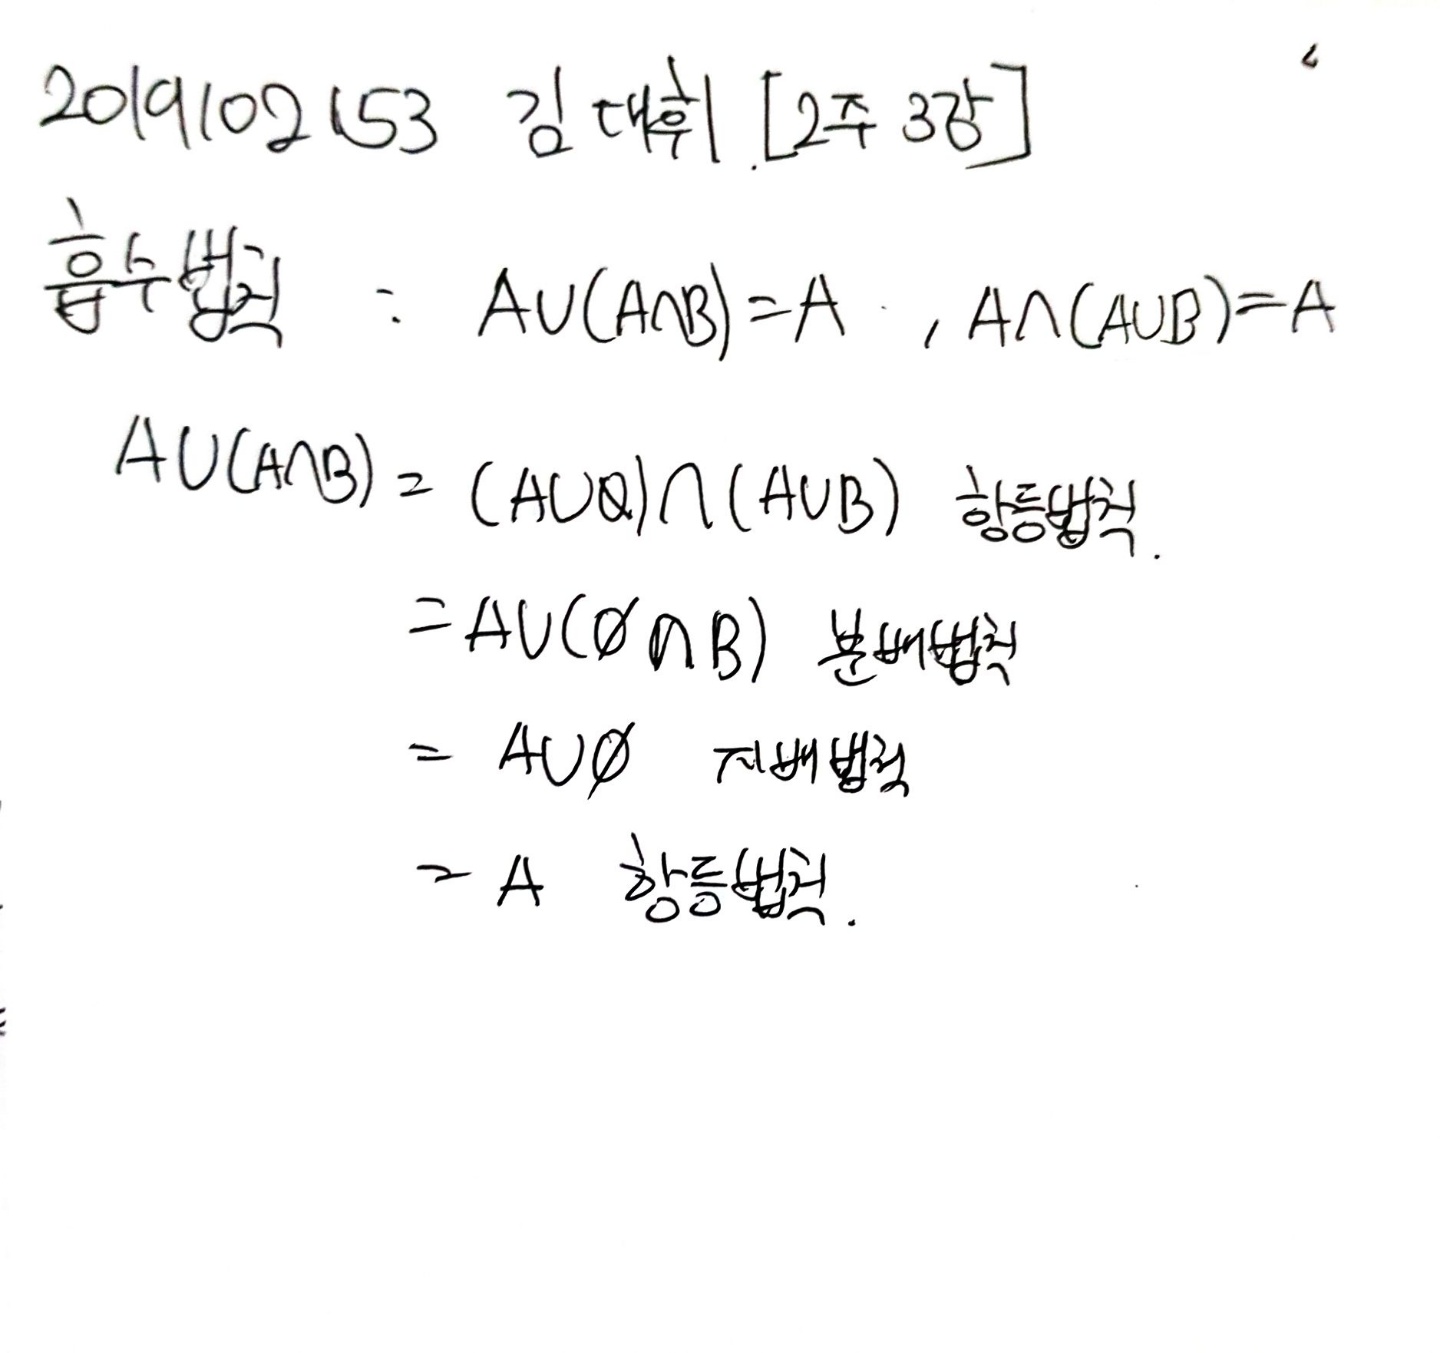 2019102153 김대휘 [2주 3강]
흡수법칙 : A∪(A∩B)=A , A∩(A∪B)=A
A∪(A∩B) = (A∪Ø)∩(A∪B) 항등법칙.
=A∪(Ø∩B) 분배법칙
= A∪Ø 지배법칙
= A 항등법칙.